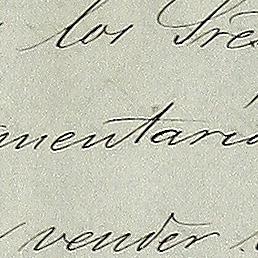 los Sres
mentari
vender